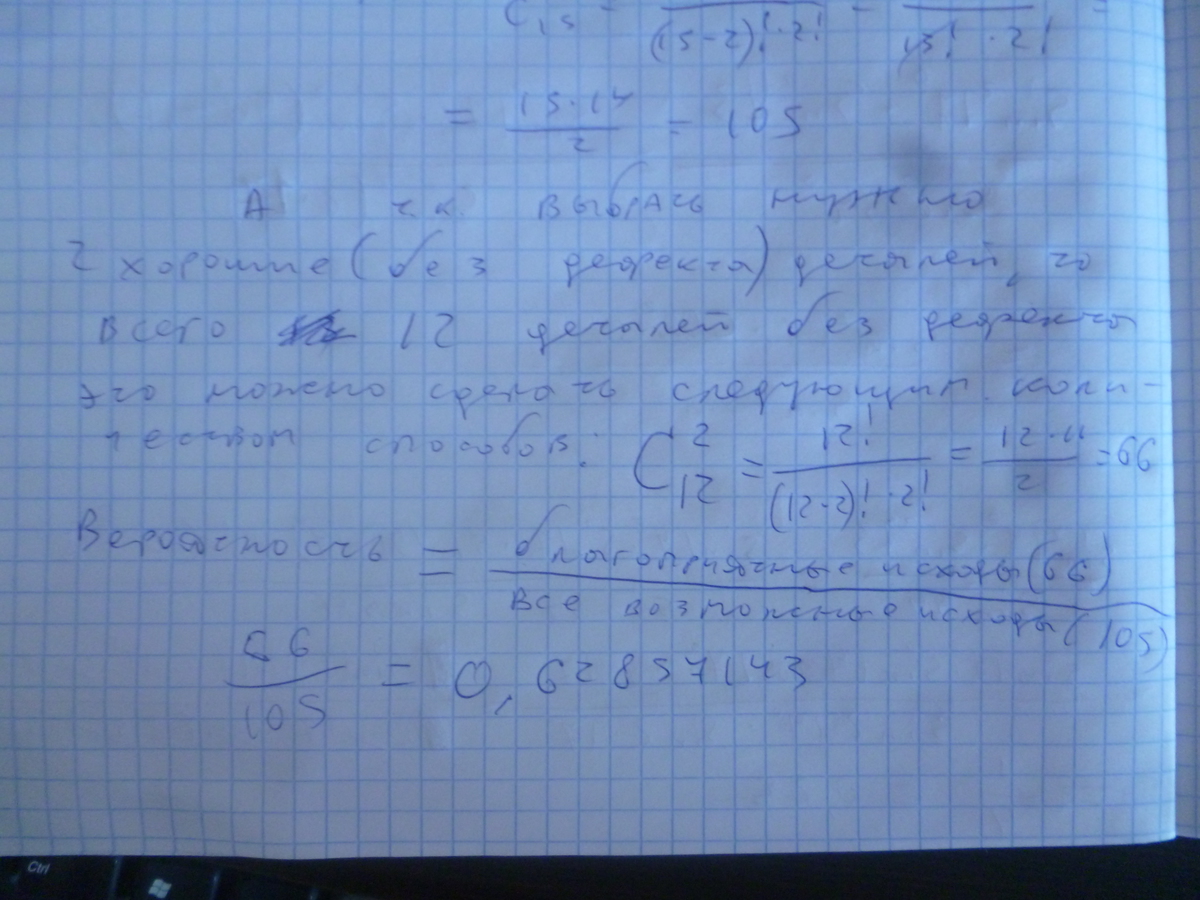 C₁₅ = (15-2)!·2! = 13!·2! =
= 15·14/2 = 105
А т.к. выбрать нужно
2 хорошие (без дефекта) деталей, то
всего 12 деталей без дефекта
это можно сделать следующим коли-
чеством способов: C²₁₂ = 12!/(12-2)!·2! = 12·11/2 = 66
Вероятность = благоприятные исходы (66)
все возможные исходы (105)
66/105 = 0,62857143
Ctrl